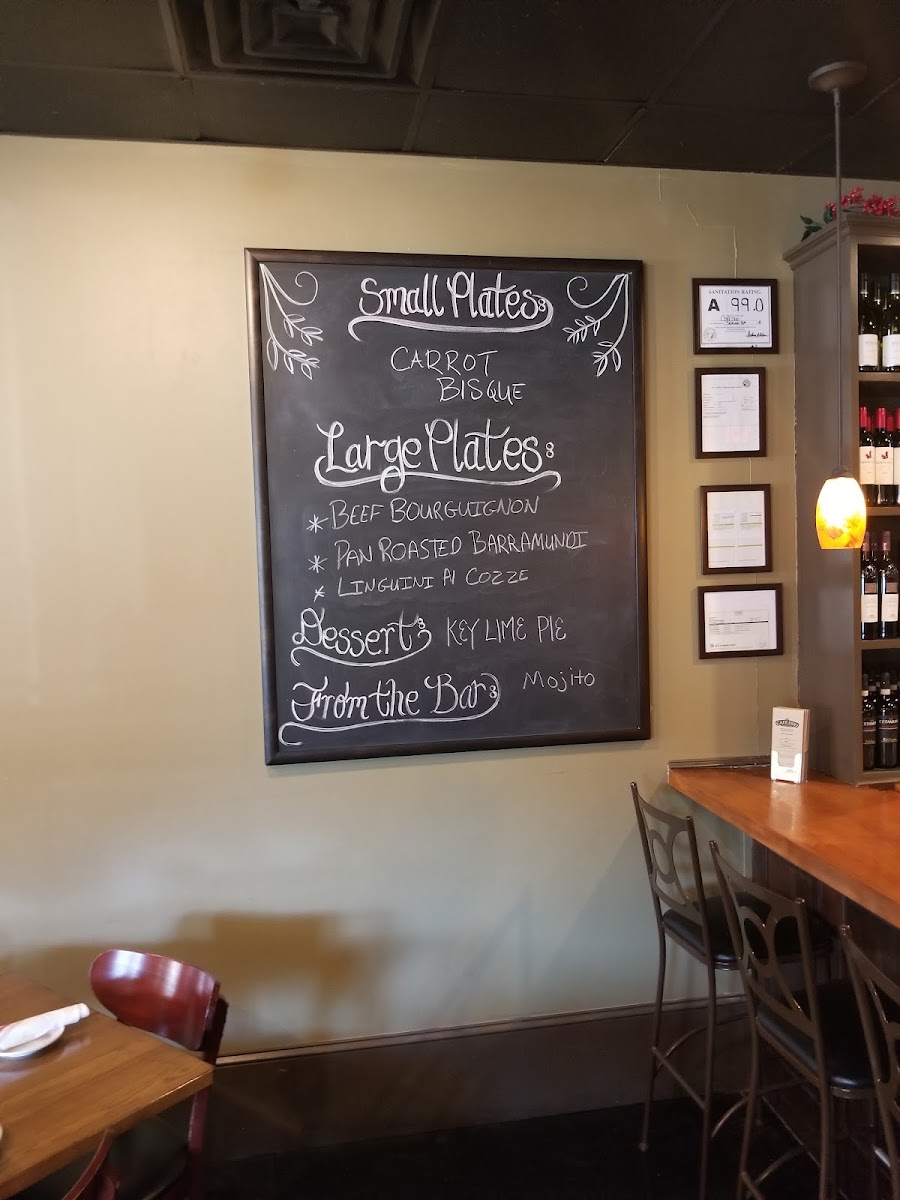 Small Plates:
CARROT
BISQUE
Large Plates:
* BEEF BOURGUIGNON
* PAN ROASTED BARRAMUNDI
* LINGUINI AI COZZE
Dessert: KEY LIME PIE
From the Bar: Mojito
SANITATION RATING
A 99.0